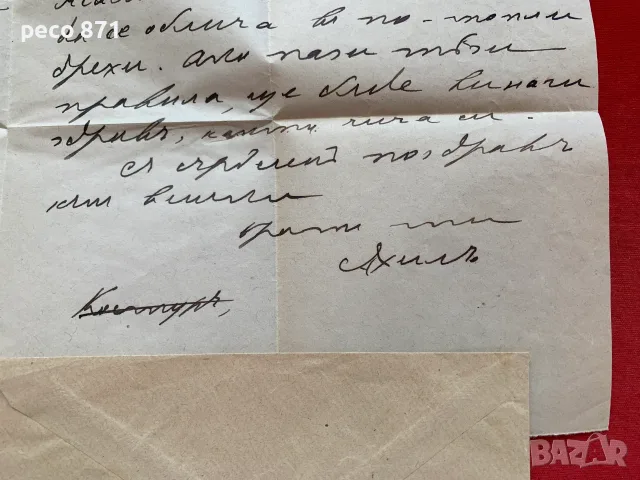 peco 871
да се облича въ по-топли
дрехи. Ако пази тѣзи
правила, ще бѫде винаги
здравъ, като чича си.
Съ сърдеченъ поздравъ
къмъ всички
братъ ти
Ахилъ
Костуръ,
BAZAR